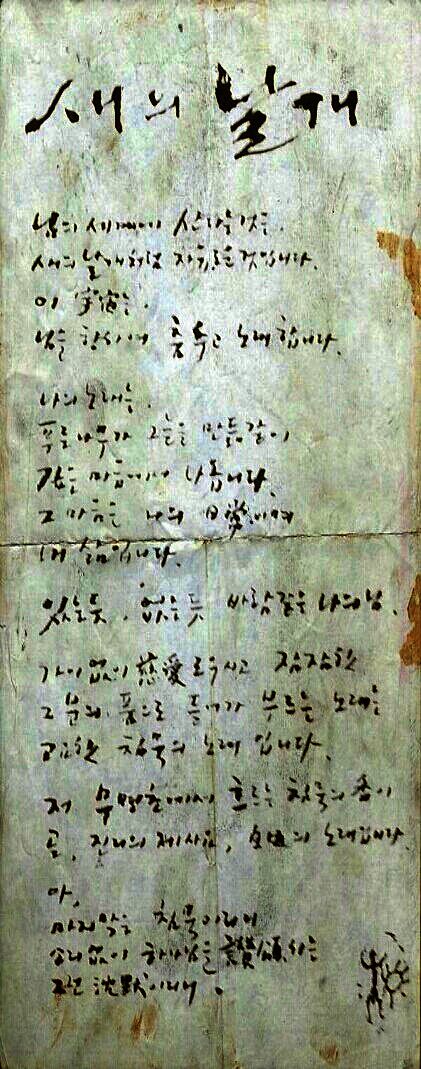 새의 날개
님의 세계에 산다는 것은,
새의 날개처럼 자유로운 것입니다.
이 宇宙는,
님을 향하여 춤추고 노래합니다.
나의 노래는,
푸른 나무가 그늘을 만듦같이
깊은 마음에서 나옵니다.
그 마음은 나의 日常이며
내 삶입니다.
있는 듯, 없는 듯 바람같은 나의 님,
가이없이 慈愛로우시고 잠잠한
그 분의 품으로 들어가 부르는 노래는
고요한 침묵의 노래 입니다.
저 무명초에서 흐르는 침묵의 香이
곧, 진리의 제사요, 의 노래입니다.
아,
마지막은 침묵이래야
소리없이 하나님을 讚頌하는
그런 沈默이래야.